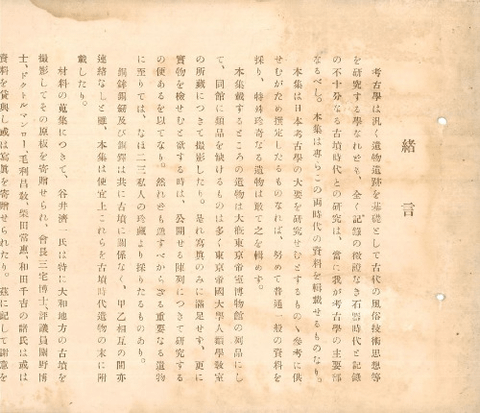 緒言
考古學は汎く遺物遺跡を基礎として古代の風俗技術思想等
を研究する學なれども、全く記錄の徵證なき石器時代と記錄
の不十分なる古墳時代との研究は、當に我が考古學の主要部
なるべし。本集は專らこの兩時代の資料を輯載せるものなり。
本集は日本考古學の大要を研究せむとするもの〻參考に供
せむがため撰定したるものなれば、努めて普通一般の資料を
採り、特殊珍奇なる遺物は敢て之を輯めず。
本集載するところの遺物は大槪東京帝室博物館の列品にし
て、同館に類品を缺けるものは多く東京帝國大學人類學教室
の所藏につきて撮影したり。是れ寫眞のみに滿足せず、更に
實物を檢せむと欲する時は、公開せる陳列につきて研究する
の便あるを以てなり。然れども逸すべからざる重要なる遺物
に至りては、なほ二三私人の珍藏より採りたるものあり。
銅鉾銅劒及び銅鐸は共に古墳に關係なく、甲乙相互の間亦
連絡なしと雖、本集は便宜上これらを古墳時代遺物の末に附
載したり。
材料の蒐集につきて、谷井濟一氏は特に大和地方の古墳を
撮影してその原板を寄贈せられ、會長三宅博士、評議員關野博
士、ドクトルマンロー、毛利昌敎、柴田常惠、和田千吉の諸氏は或は
資料を貸與し或は寫眞を寄贈せられたり。茲に記して謝意を